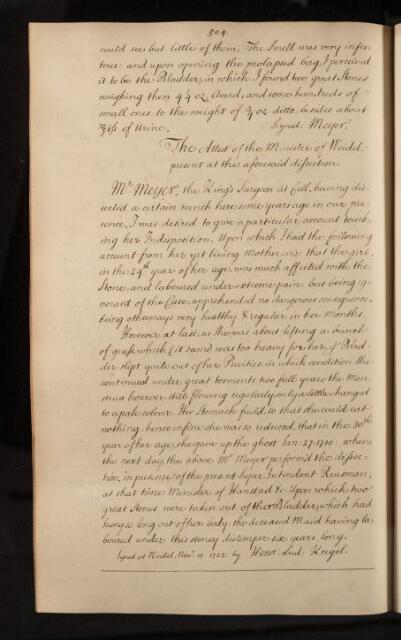 504.
could see but little of them. The Smell was very infec-
tous: and upon opening the prolapsed bag, I perceived
it to be the Bladder, in which I found two great Stones
weighing then 4¼ oz Averd, and some hundreds of
small ones to the weight of ¾ oz ditto, besides about
of Urine. Signed Meyer.
The Attest of the Minister of Weidel
present at the aforesaid dissection.
Mr Meyer, the King's Surgeon at Cell, having dis-
sected a certain wench here some years ago in our pre-
sence, I was desired to give a particular account touch-
ing her Indisposition. Upon which I had the following
account from her yet living Mother, viz: that the girl,
in the 24th year of her age, was much affected with the
Stone, and laboured under extreme pain: but being ig-
norant of the Case, apprehended no dangerous consequence,
being otherways very healthy & regular in her Months.
However at last, as she was about lifting a bunch
of grass, which (it seems) was too heavy for her, ye Blad-
der slipt quite out of her Privities: in which condition she
continued under great torments two full years, the Men-
strua however still flowing regularly, only a little changed
to a pale colour. Her Stomach fail'd, so that she could eat
nothing: hence in fine she was so reduced, that in the 30th
year of her age, she gave up the ghost Jan: 27. 1710: when
the next day, the above Mr Meyer perform'd the dissec-
tion, in presence of the present Super Intendant
at that time Minister of Upon which two
great Stones were taken out of the Bladder, which had
hung so long out of her body: the deceased Maid having la-
boured under this stoney distemper six years long.
Signed at Weidel, Novr 15. 1723: by Henr. Lud: Kregel.